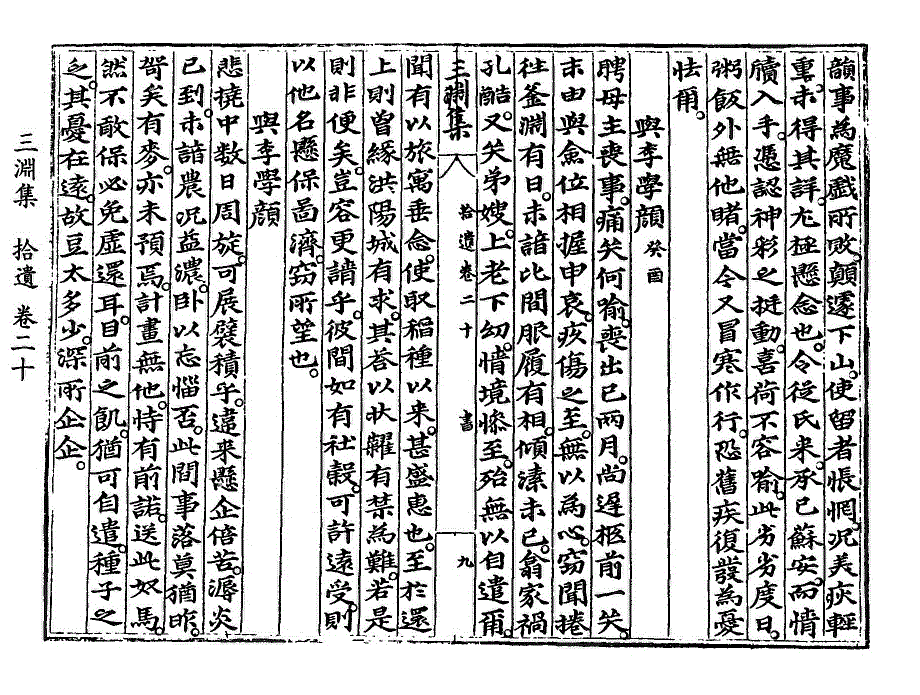 韻事爲魔戲所敗。顚遽下山。使留者悵惘。况美疾輕
重。未得其詳。尤極懸念也。令從氏来。承已蘇安。而情
牘入手。憑認神彩之挺動。喜荷不容喩。此劣劣度日。
粥飯外無他睹。當令又冒寒作行。恐舊疾復發爲憂
怯爾。
與李學顔 癸酉
聘母主喪事。痛矣何喩。喪出已兩月。尙遲柩前一哭。
末由與僉位相握申哀。疚傷之至。無以爲心。窃聞捲
徃釜淵有日。未諳比間服履有相。傾溸未已。翁家禍
孔酷。又哭弟嫂。上老下幼。情境慘至。殆無以自遣爾。
三淵集 拾遺卷二十 書 九
聞有以旅寓垂念。使取稻種以来。甚盛惠也。至於還
上則曾緣洪陽城有求。其答以狀糶有禁爲難。若是
則非便矣。豈容更請乎。彼間如有社糓。可許遠受。則
以他名懸保啚濟。窃所望也。
與李學顔
悲撓中数日周旋。可展襞積乎。違来懸企倍苦。溽炎
已到。未諳農况益濃。卧以忘惱否。此間事落莫猶昨。
哿矣有麥。亦未預焉。計畫無他。恃有前諾。送此奴馬。
然不敢保必免虛還耳。目前之飢。猶可自遣。種子之
乏。其憂在遠。故豆太多少。深所企企。
三淵集 拾遺 卷二十